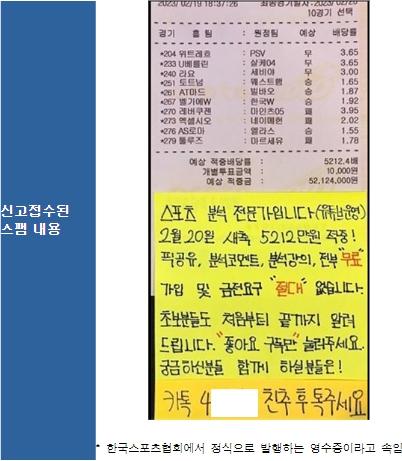 2023/02/19 18:37:26 최종경기일자: 2023/02/20
10경기 선택
경기 홈 팀 : 원정팀 예상 배당률
*204 위트레흐 : PSV 무 3.65
*233 U베를린 : 샬케04 무 3.65
*240 라요 : 세비야 무 3.00
*251 토트넘 : 웨스트햄 승 1.65
*261 AT마드 : 빌바오 승 1.87
*267 벨기에W : 한국W 승 1.92
*270 레버쿠젠 : 마인츠05 패 3.95
*273 엑셀시오 : 네이메헌 패 2.02
*276 AS로마 : 엘라스 승 1.55
*279 툴루즈 : 마르세유 패 1.78
예상 적중배당률 : 5212.4배
개별투표금액 : 10,000원
예상 적중금 : 52,124,000원
신고접수된
스팸 내용
스포츠 분석 전문가입니다
2월 20일 새축 5212만원 적중!
픽공유, 분석코멘트, 분석강의, 전부 "무료"
가입 및 금전요구 "절대" 없습니다.
초보분들도 처음부터 끝까지 알려
드립니다. "좋아요 구독만" 눌러주세요.
궁금하신분들 함께 하실분들은!
카톡 4 친추 후 톡주세요
* 한국스포츠협회에서 정식으로 발행하는 영수증이라고 속임